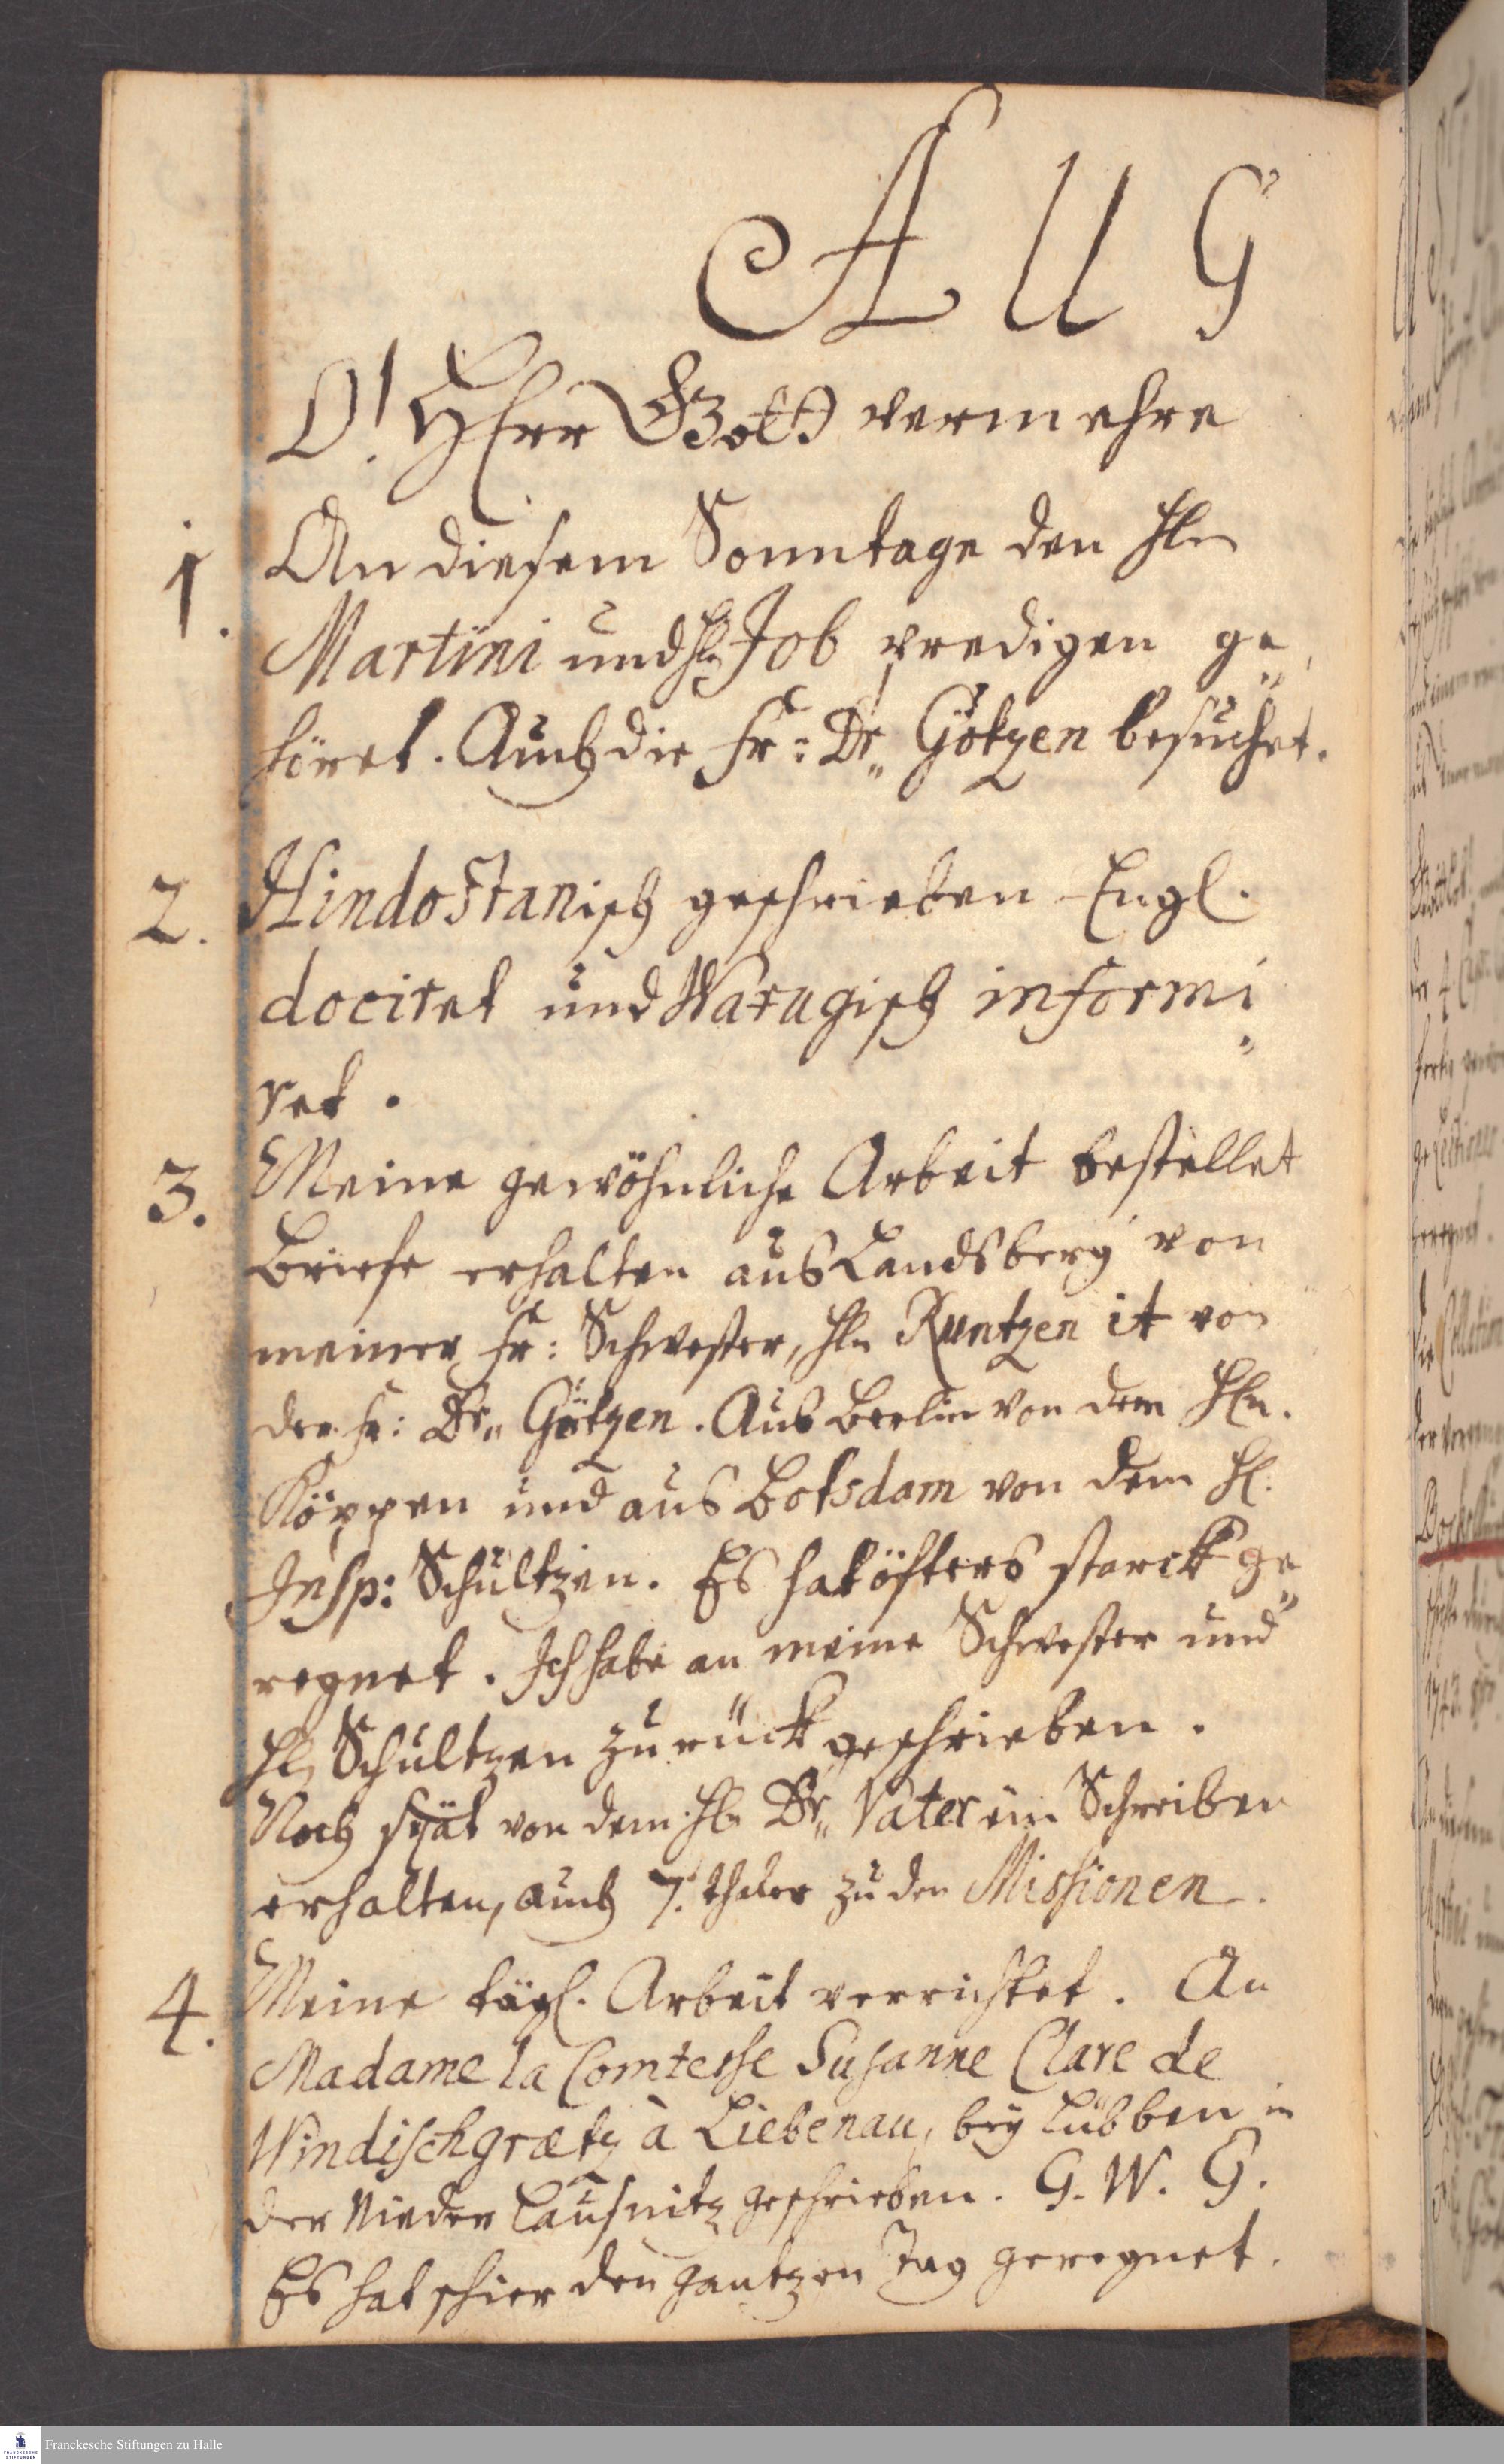 A U G
O! HErr Gott vermehre
1. An diesem Sonntage den Hln
Martini und Hln Job predigen ge„
höret. Auch die Fr: Dr„ Götzen besuchet.
2. Hindostanisch geschrieben Engl.
dociret und Warugisch informi„
ret.
3. Meine gewöhnliche Arbeit bestellet
Briefe erhalten aus Landsberg von
meiner Fr: Schwester, Hln Runtzen it von
der Fr: Dr„ Götzen. Aus Berlin von dem Hln.
Köppen und aus Botsdam von dem Hl.
Insp: Schultzen. Es hat öfters starck ge„
regnet. Ich habe an meine Schwester und
Hln Schultzen zurück geschrieben.
Noch spät von dem Hln Dr„ Vater ein Schreiben
erhalten, auch 7. thaler zu den Missionen.
4. Meine tägl. Arbeit verrichtet. An
Madame la Comtesse Susanne Clare de
Windischgrætz à Liebenau, bey Lübben in
der Nieder Lausnitz geschrieben. G. W. G.
Es hat schier den gantzen Tag geregnet.
Franckesche Stiftungen zu Halle